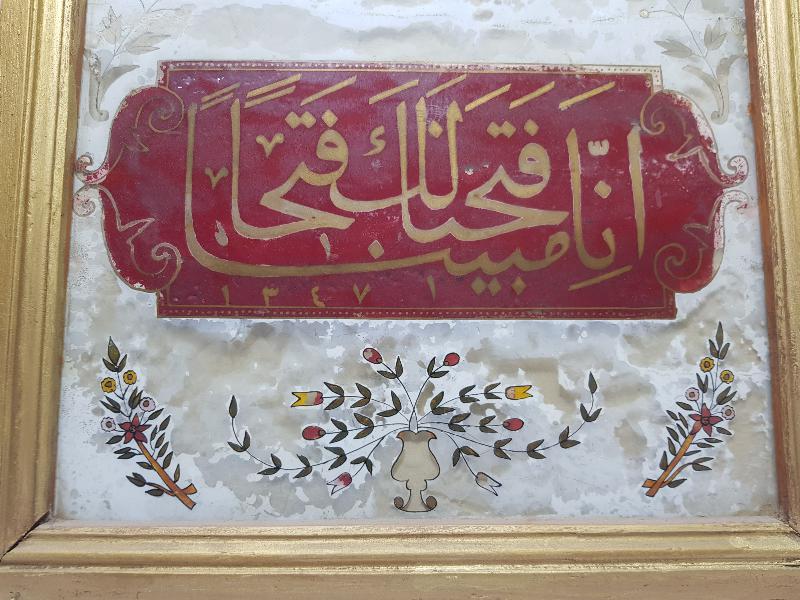 انا فتحنا لك فتحا مبينا
١٣٤٧